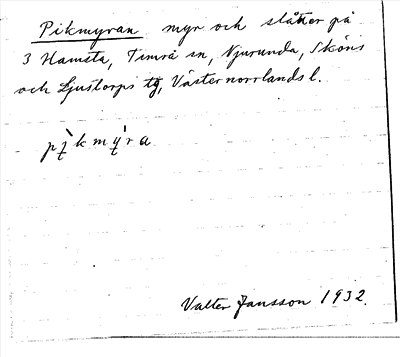 Pikmyran myr och slåtter på
3 Hamsta, Timrå sn, Njurunda, Sköns
och Ljustorps tg, Västernorrlands l.
pìkmỳ̩ra
Valter Jansson 1932.